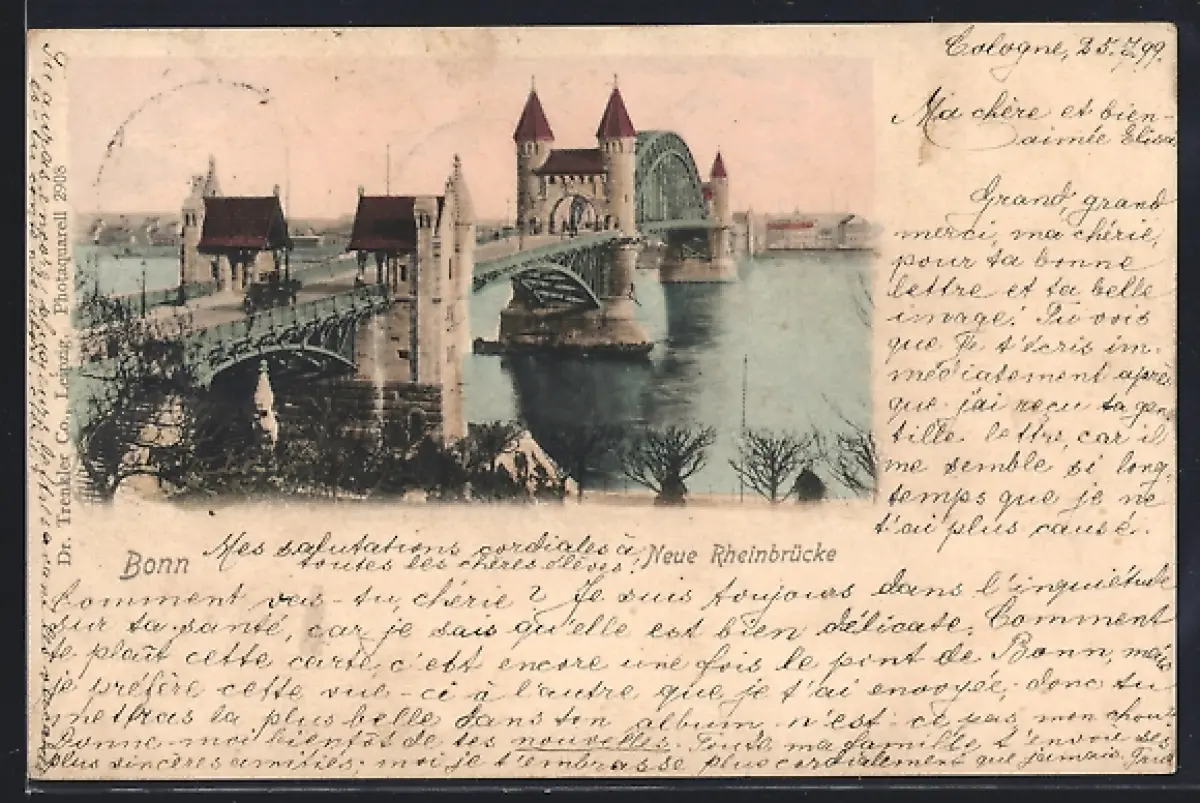 Cologne, 25.7.99.
Ma chère et bien-
aimée Elisa
Grand, grand
merci, ma chérie,
pour ta bonne
lettre et ta belle
image! Tu vois
que je t'écris im-
médiatement après
que j'ai reçu ta gen
tille lettre, car il
me semble si long-
temps que je ne
t'ai plus causé.
Mes salutations cordiales à
toutes les chères élèves!
Bonn
Neue Rheinbrücke
Comment vas-tu, chérie? Je suis toujours dans l'inquiétude
sur ta santé, car je sais qu'elle est bien délicate. Comment
te plaût cette carte, c'est encore une fois le pont de Bonn, mais
je préfère cette vue-ci à l'autre que je t'ai envoyée, donc tu
mettras la plus belle dans ton album, n'est-ce pas, mon chou?
Donne-moi bientôt de tes nouvelles. Toute ma famille t'envoie ses
plus sincères amitiés, moi je t'embrasse plus cordialement que jamais.
Dr. Trenkler Co., Leipzig, Photaquarell 2908